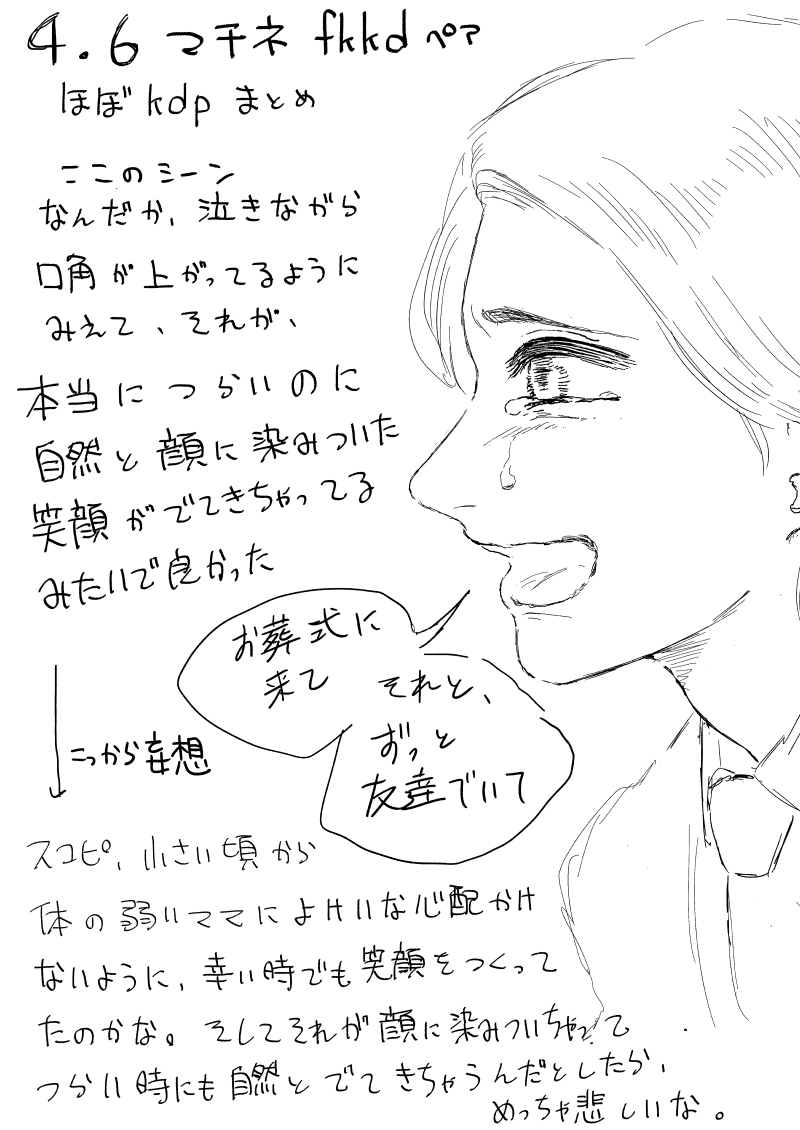 4.6 マチネ fkkd ペア
ほぼ kdp まとめ
ここのシーン
なんだか、泣きながら
口角が上がってるように
みえて、それが、
本当につらいのに
自然と顔に染みついた
笑顔がでてきちゃってる
みたいで良かった
お葬式に
来て
それと、
ずっと
友達でいて
こっから妄想
スコピ、小さい頃から
体の弱いママによけいな心配かけ
ないように、辛い時でも笑顔をつくって
たのかな。そしてそれが顔に染みついちゃって
つらい時にも自然とでてきちゃうんだとしたら、
めっちゃ悲しいな。